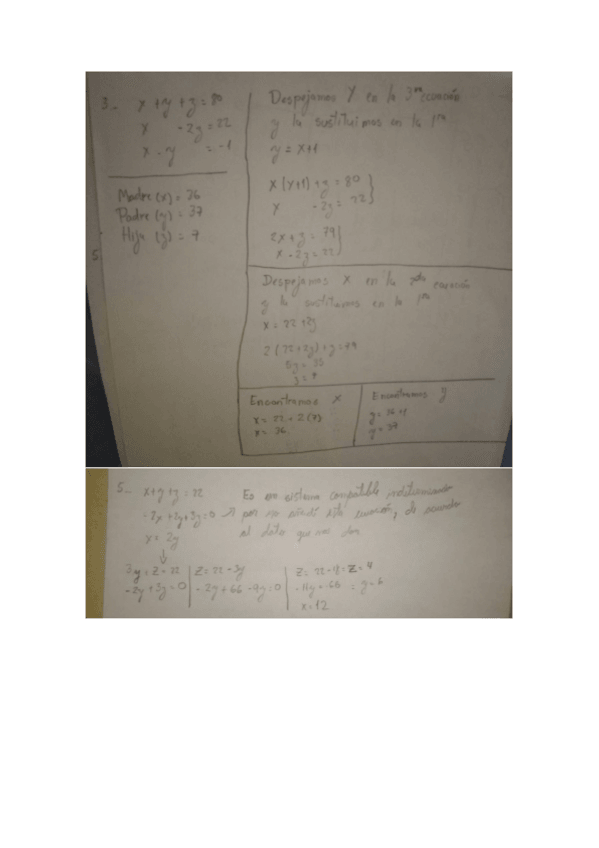 3.- x + y + z = 80
x - 2z = 22
x - y = -1
Madre (x) = 36
Padre (y) = 37
Hija (z) = 7
5.
Despejamos Y en la 3ra ecuación
y la sustituimos en la 1ra
y = x+1
x (x+1) + z = 80
x - 2z = 22
2x + z = 79
x - 2z = 22
Despejamos X en la 2da ecuación
y la sustituimos en la 1ra
x = 22 + 2z
2 (22 + 2z) + z = 79
5z = 35
z = 7
Encontramos X
x = 22 + 2(7)
x = 36
Encontramos y
y = 36 + 1
y = 37
5.- x + y + z = 22
-2x + 2y + 3z = 0
x = 2y
Es un sistema compatible
por no añadí esta ecuación, de acuerdo
al dato que nos dan
3y = z = 22
-2y + 3z = 0
z = 22 - 3y
-2y + 66 - 9y = 0
z = 22 - 18 = z = 4
-11y = -66 = y = 6
x = 12